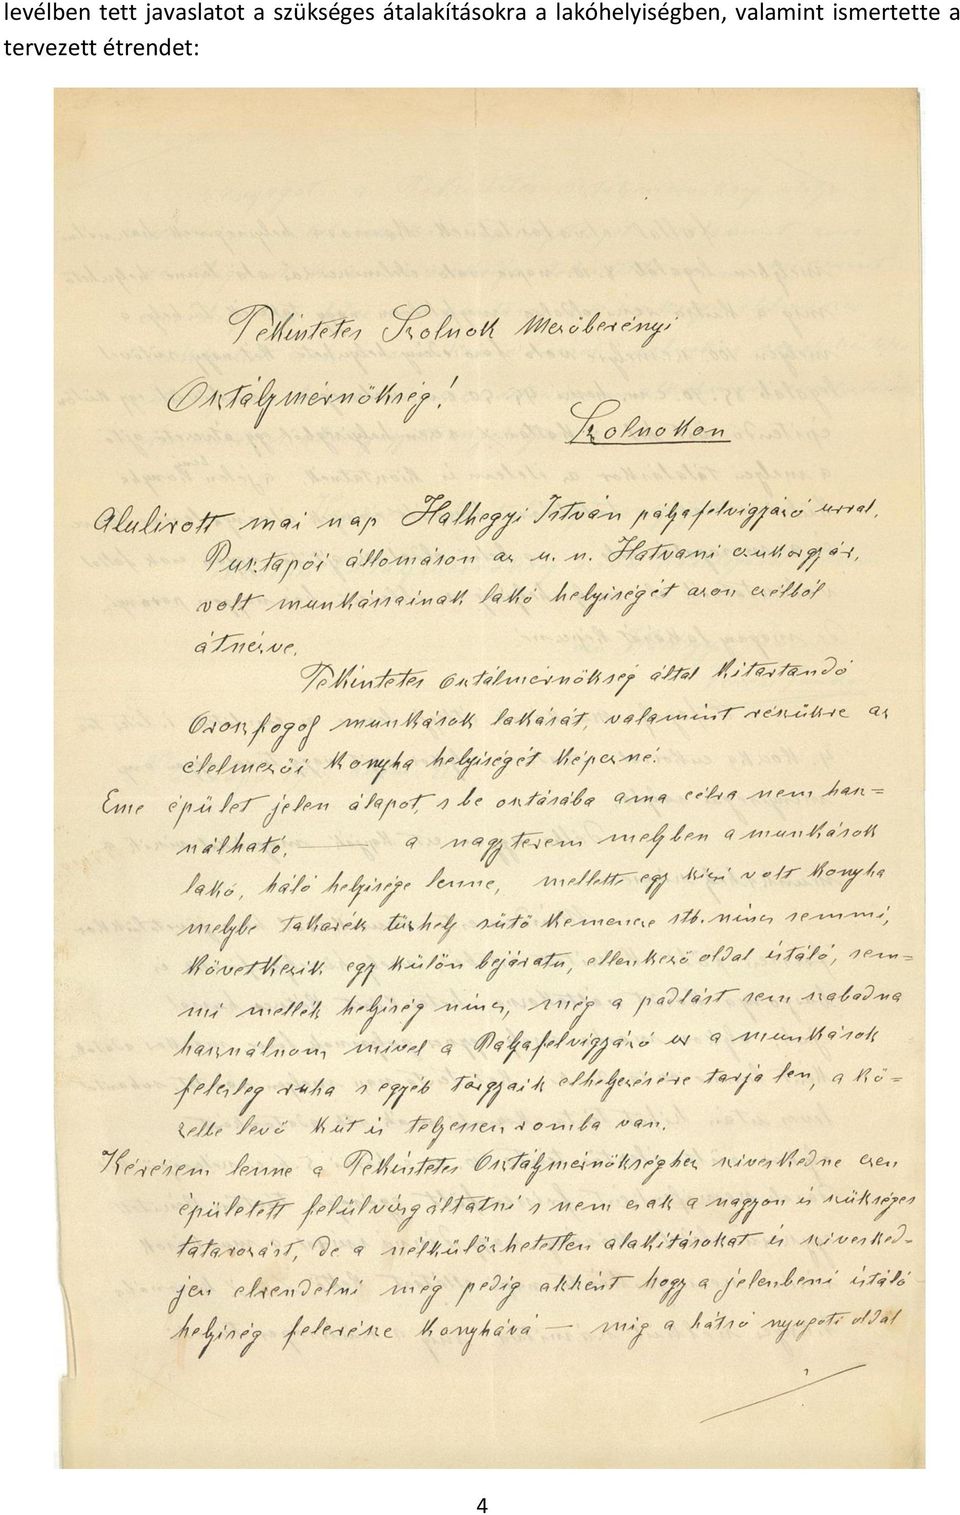 levélben tett javaslatot a szükséges átalakításokra a lakóhelyiségben, valamint ismertette a
tervezett étrendet:
Tekintetes Szolnok Mezőberényi
Osztálymérnökség!
Szolnokon
Alulirott mai nap Halhegyi István pályafelvigyázó urral,
Pusztapói állomáson az u. n. Hatvani czukorgyár,
volt munkássainak lakó helyiségét azon czélból
átnézve,
Tekintetes Osztálmérnökség által kitartandó
Orosz fogoj munkások lakását, valamint részükre az
élelmezöi konyha helyiségét képezné.
Eme épület jelen álapot, s be osztásába ama célra nem hasz=
nálható, — a nagy terem melyben a munkások
lakó, háló helyisége lenne, mellette egy kicsi volt konyha
melybe takarék tüzhely sütö kemencze stb. nincs semmi,
következik egy külön bejáratu, ellenkezö oldal istáló, sem=
mi mellék helyiség nincs, még a padlást sem szabadna
használnom mivel a Pályafelvigyázó ur a munkások
felesleg ruha s egyéb tárgyaik elhelyezésére tarja fen, a kö=
zelbe levö kút is teljessen romba van.
Kérésem lenne a Tekintetes Osztálymérnökséghez sziveskedne ezen
épületett felülvizsgáltatni s nem csak a nagyon is szükséges
tatarozást, de a nélkülözhetetlen alakitásokat is sziveskedjen
jen elrendelni még pedig akként hogy a jelenbeni istáló
helyiség felerésze konyhává — mig a hátsó nyugoti oldal
4